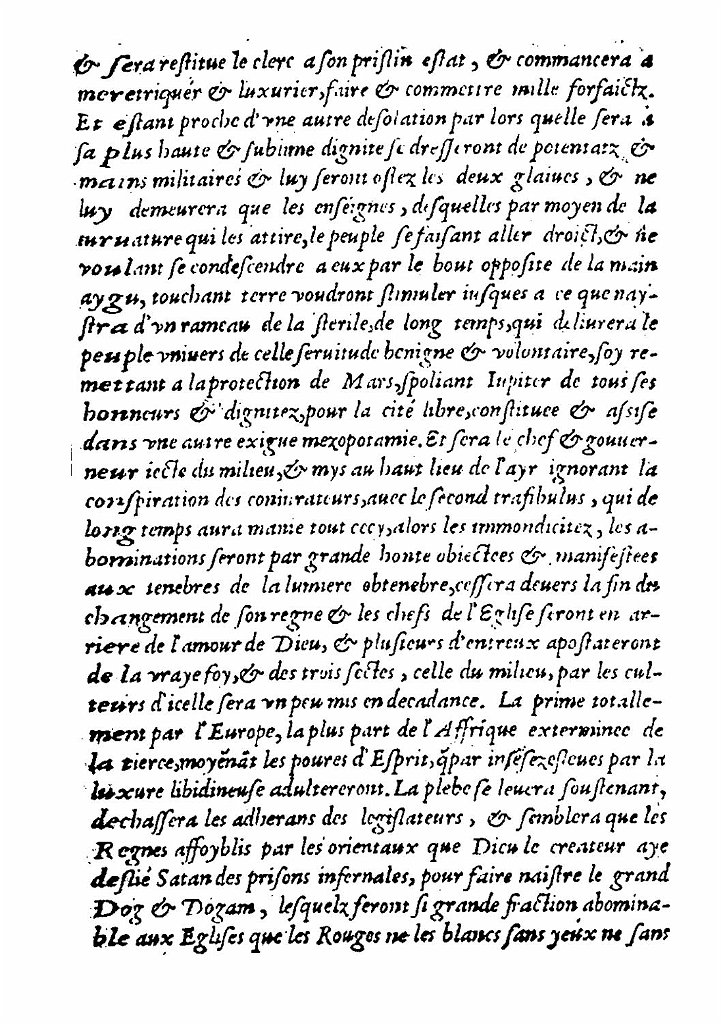 & sera restitue le clerc a son pristin estat, & commancera a
meretriquer & luxurier, faire & commettre mille forfaictz.
Et estant proche d'vne autre desolation par lors quelle sera a
sa plus haute & sublime dignite se dresseront de potentatz &
mains militaires & luy seront ostez les deux glaiues, & ne
luy demeurera que les enseignes, desquelles par moyen de la
curuature qui les attire, le peuple se faisant aller droict, & ne
voulant se condescendre a eux par le bout opposite de la main
aygu, touchant terre voudront stimuler iusques a ce que nay-
stra d'vn rameau de la sterile, de long temps, qui deliurera le
peuple vniuers de celle seruitude benigne & volontaire, soy re-
mettant a la protection de Mars, spoliant Iupiter de tous ses
honneurs & dignitez, pour la cité libre, constituee & assise
dans vne autre exigue mezopotamie. Et sera le chef & gouuer-
neur iecte du milieu, & mys au haut lieu de l'ayr ignorant la
conspiration des coniurateurs, auec le second trasibulus, qui de
long temps aura manie tout cecy, alors les immondicitez, les a-
bominations seront par grande honte obiectees & manifestees
aux tenebres de la lumiere obtenebre, cessera deuers la fin du
changement de son regne & les chefs de l'Eglise seront en ar-
riere de l'amour de Dieu, & plusieurs d'entreux apostateront
de la vraye foy, & des trois sectes, celle du milieu, par les cul-
teurs d'icelle sera vn peu mis en decadance. La prime totalle-
ment par l'Europe, la plus part de l'Affrique exterminee de
la tierce, moyẽnãt les poures d'Esprit, q̃ par insẽsez esleues par la
luxure libidineuse adultereront. La plebe se leuera soustenant,
dechassera les adherans des legislateurs, & semblera que les
Regnes affoyblis par les orientaux que Dieu le createur aye
deslié Satan des prisons infernales, pour faire naistre le grand
Dog & Dogam, lesquelz feront si grande fraction abomina-
ble aux Eglises que les Rouges ne les blancs sans yeux ne sans